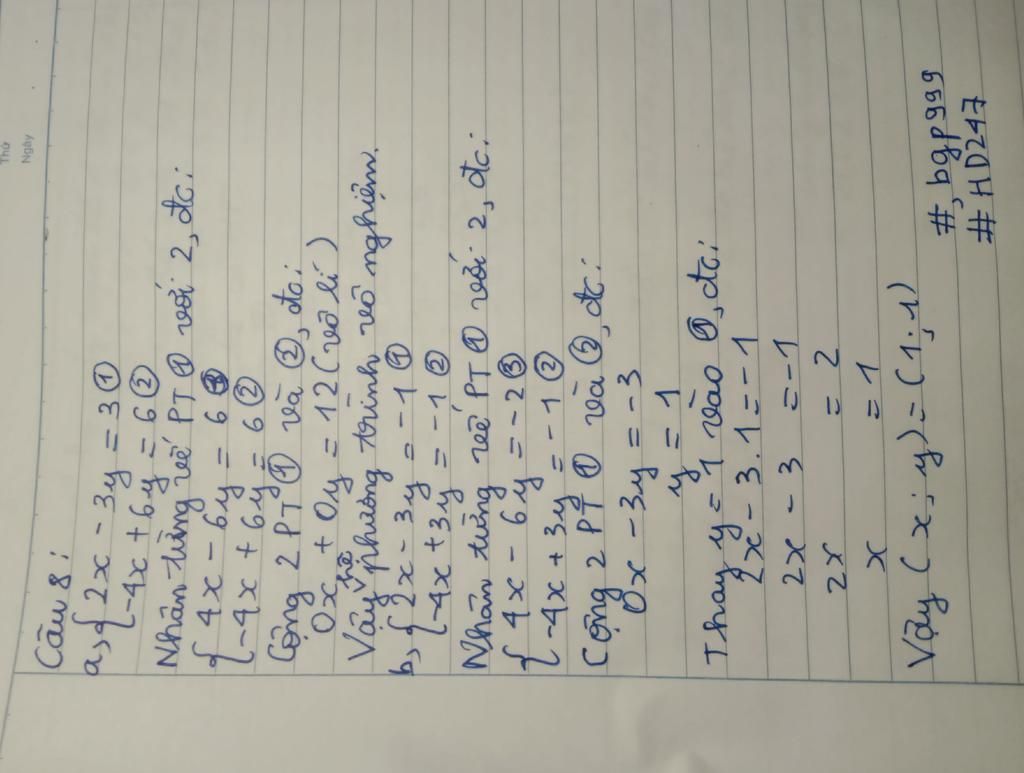 Thứ
Ngày
Câu 8:
a, { 2x - 3y = 3 ①
{ -4x + 6y = 6 ②
Nhân từng vế PT ① với 2, đc:
{ 4x - 6y = 6
{ -4x + 6y = 6 ②
Cộng 2 PT ① và ②, đc:
0x + 0y = 12 (vô lí)
Vậy hệ phương trình vô nghiệm.
b, { 2x - 3y = -1 ①
{ -4x + 3y = -1 ②
Nhân từng vế PT ① với 2, đc:
{ 4x - 6y = -2 ③
{ -4x + 3y = -1 ②
Cộng 2 PT ① và ②, đc:
0x - 3y = -3
y = 1
Thay y = 1 vào ①, đc:
2x - 3.1 = -1
2x - 3 = -1
2x = 2
x = 1
Vậy (x; y) = (1; 1)
#, bgp999
# HD247